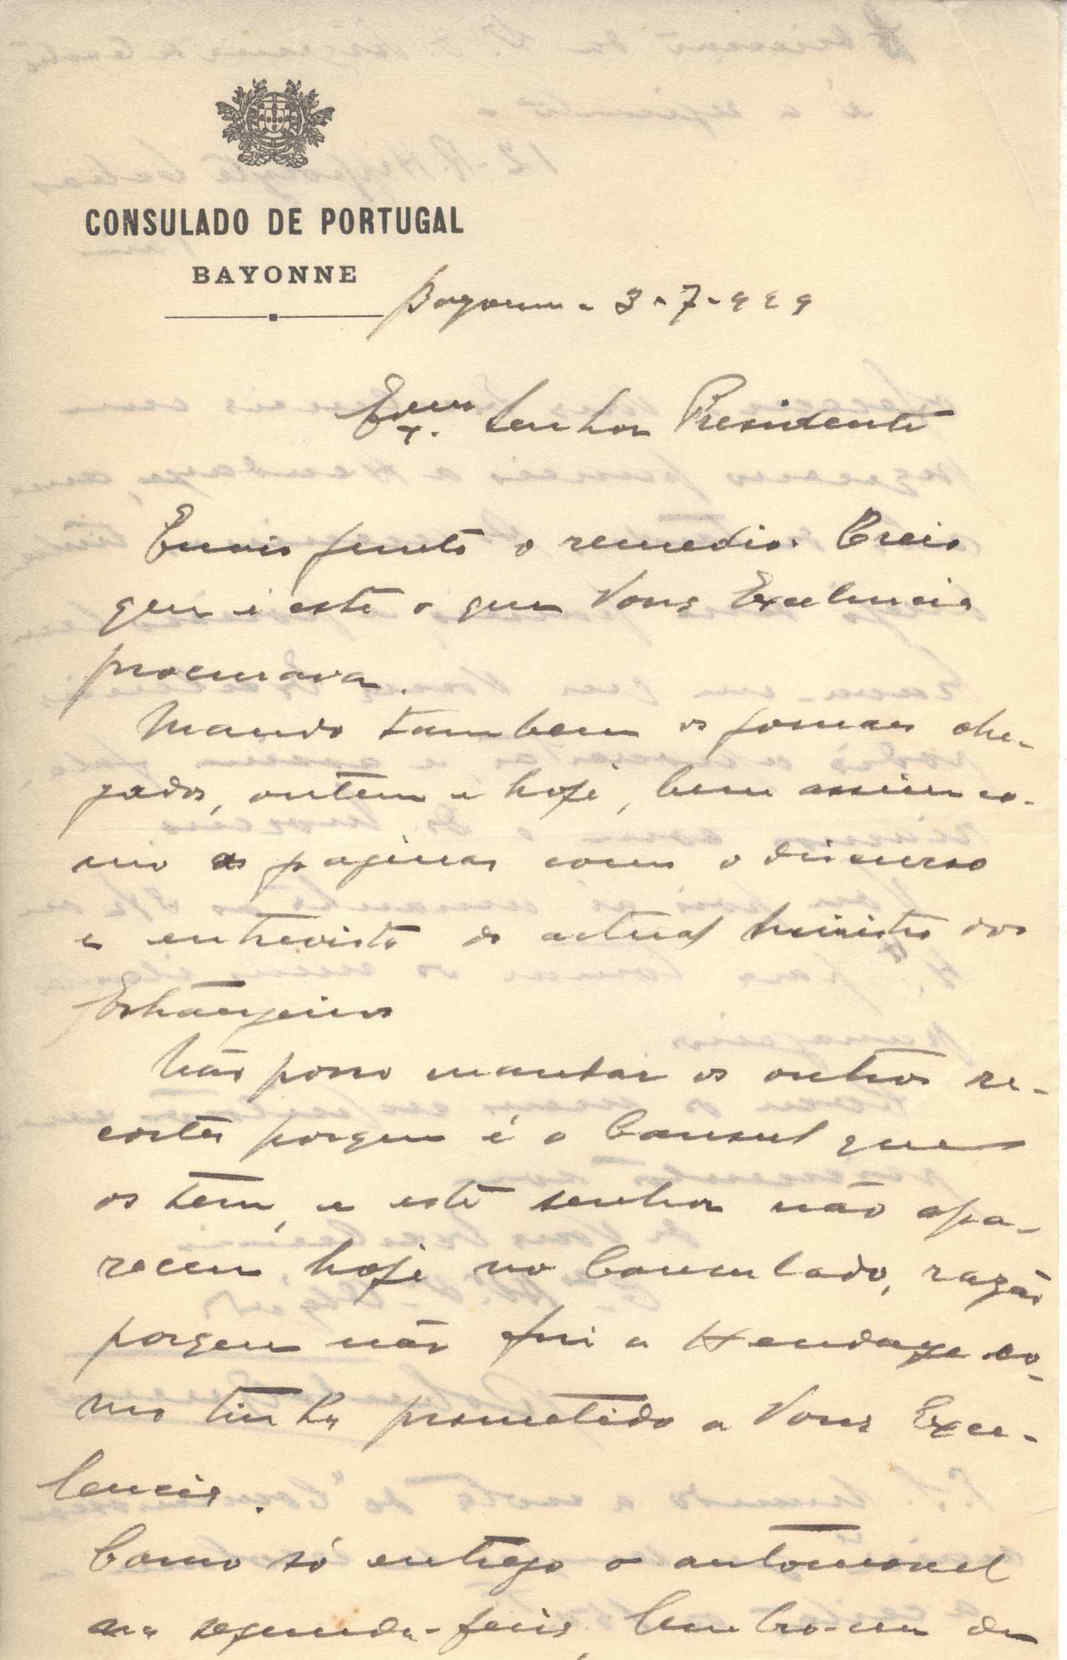 CONSULADO DE PORTUGAL
BAYONNE
Bayonne - 3-7-929
Exmo. Senhor Presidente
Envio junto o remedio. Creio
que é este o que Vossa Excelencia
procurava.
Mando tambem os jornaes che-
gados, ontem e hoje, bem assim co-
mo as paginas com o discurso
e entrevista do actual Ministro dos
Estrangeiros
Não posso mandar os outros re-
cortes porque é o Consul que
os tem, e este senhor não apa-
receu hoje no Consulado, razão
porque não fui a Hendaye co-
mo tinha prometido a Vossa Exce-
lencia.
Como só entrego o automovel
na segunda-feira, lembro-me de